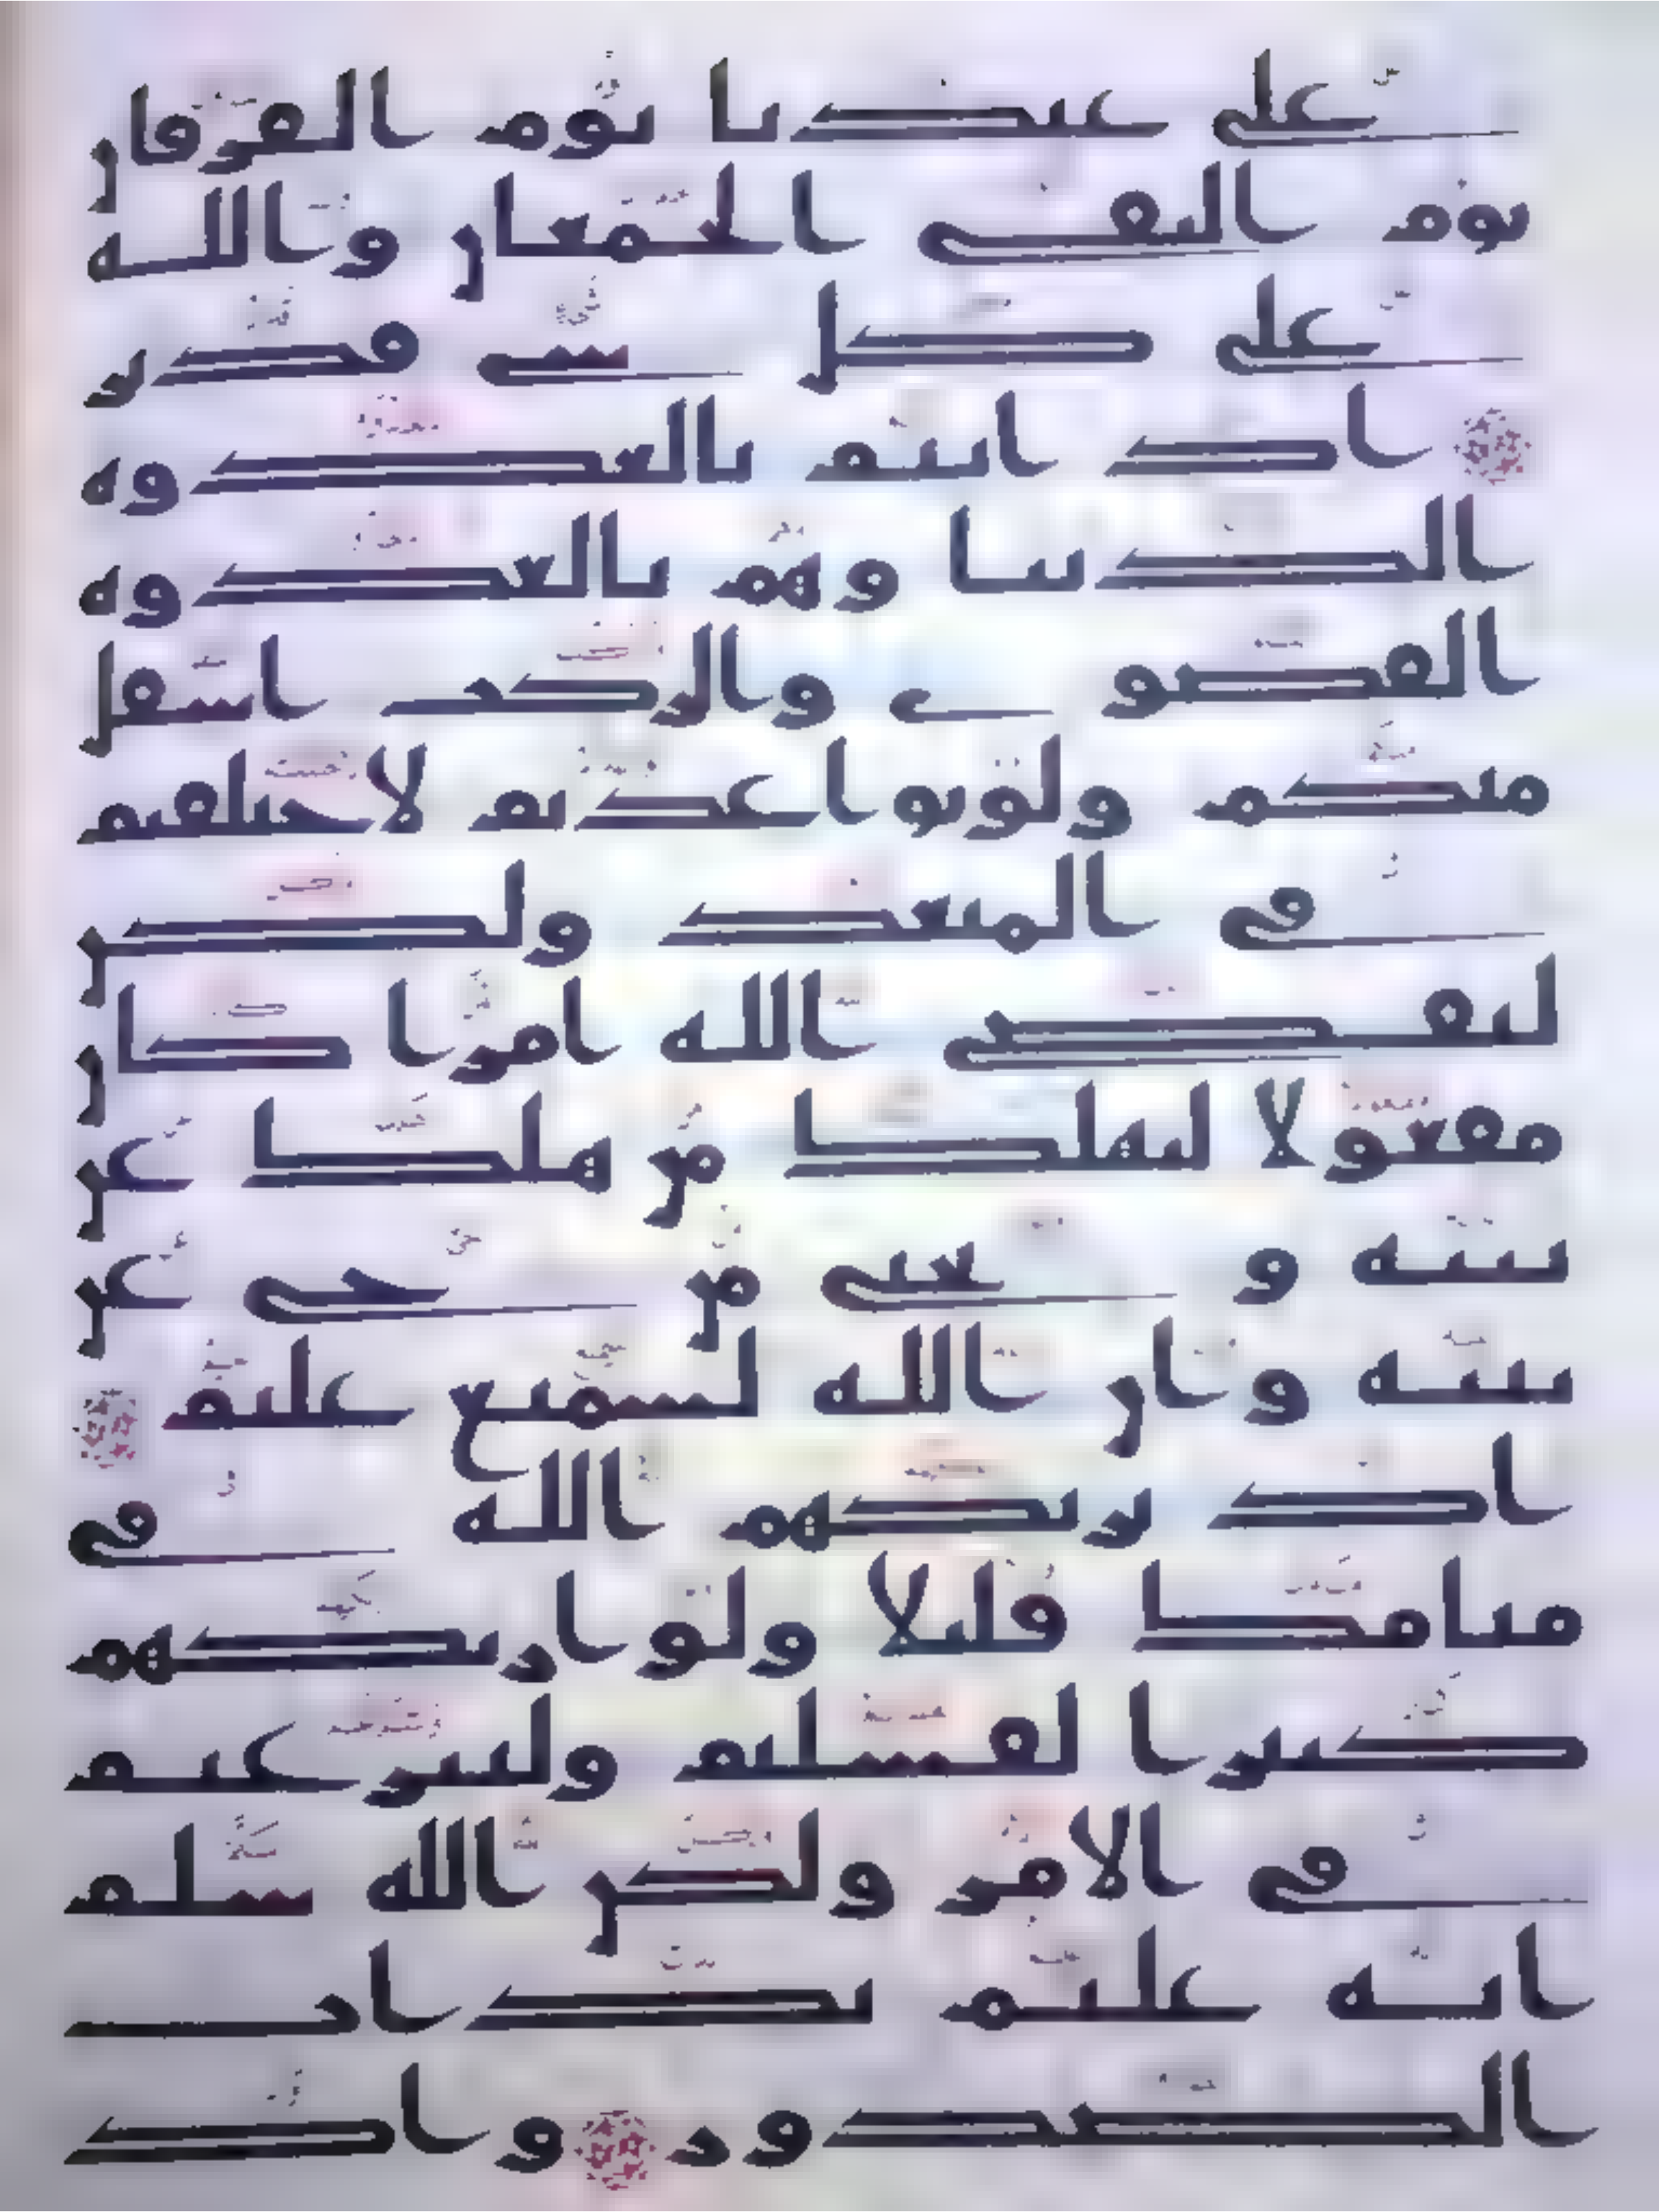 على عبدنا يوم الفرقان
يوم التقى الجمعان والله
على كل شى قدير
اذ انتم بالعدوه
الدنيا وهم بالعدوه
القصوى والركب اسفل
منكم ولو تواعدتم لاختلفتم
فى الميعد ولكن
ليقضى الله امرا كان
مفعولا ليهلك من هلك عن
بينه ويحيى من حى عن
بينه وان الله لسميع عليم
اذ يريكهم الله فى
منامك قليلا ولو اريكهم
كثيرا لفشلتم ولتنزعتم
فى الامر ولكن الله سلم
انه عليم بذات
الصدور واذ